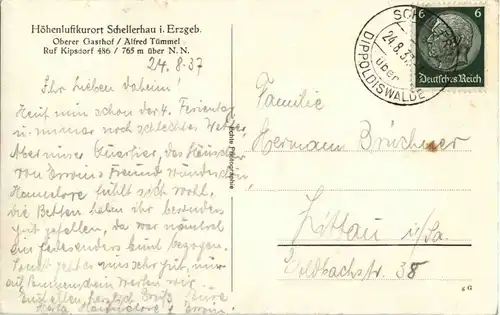 Höhenluftkurort Schellerhau i. Erzgeb.
Oberer Gasthof / Alfred Tümmel
Ruf Kipsdorf 486 / 765 m über N. N.
24.8.37
Ihr Lieben daheim!
Heut nun schon der 4. Ferientag
u. immer noch schlechtes Wetter.
Aber unser Quartier, das Häuschen
von Erwins Freund wunderschön
Hannelore fühlt sich wohl,
die Betten haben ihr besonders
gut gefallen, da war nämlich
ein Federdeckbett bunt bezogen.
Sonst geht es uns sehr gut, nur
auf
Euch allen herzlich Grüße Eure
Herta Hannelore & Erwin
Echte Photographie
SCH
24.8.37
über
DIPPOLDISWALDE
6 6
Deutsches Reich
Familie
Hermann Brückner
Zittau i/Sa.
Goldbachstr. 38
g G